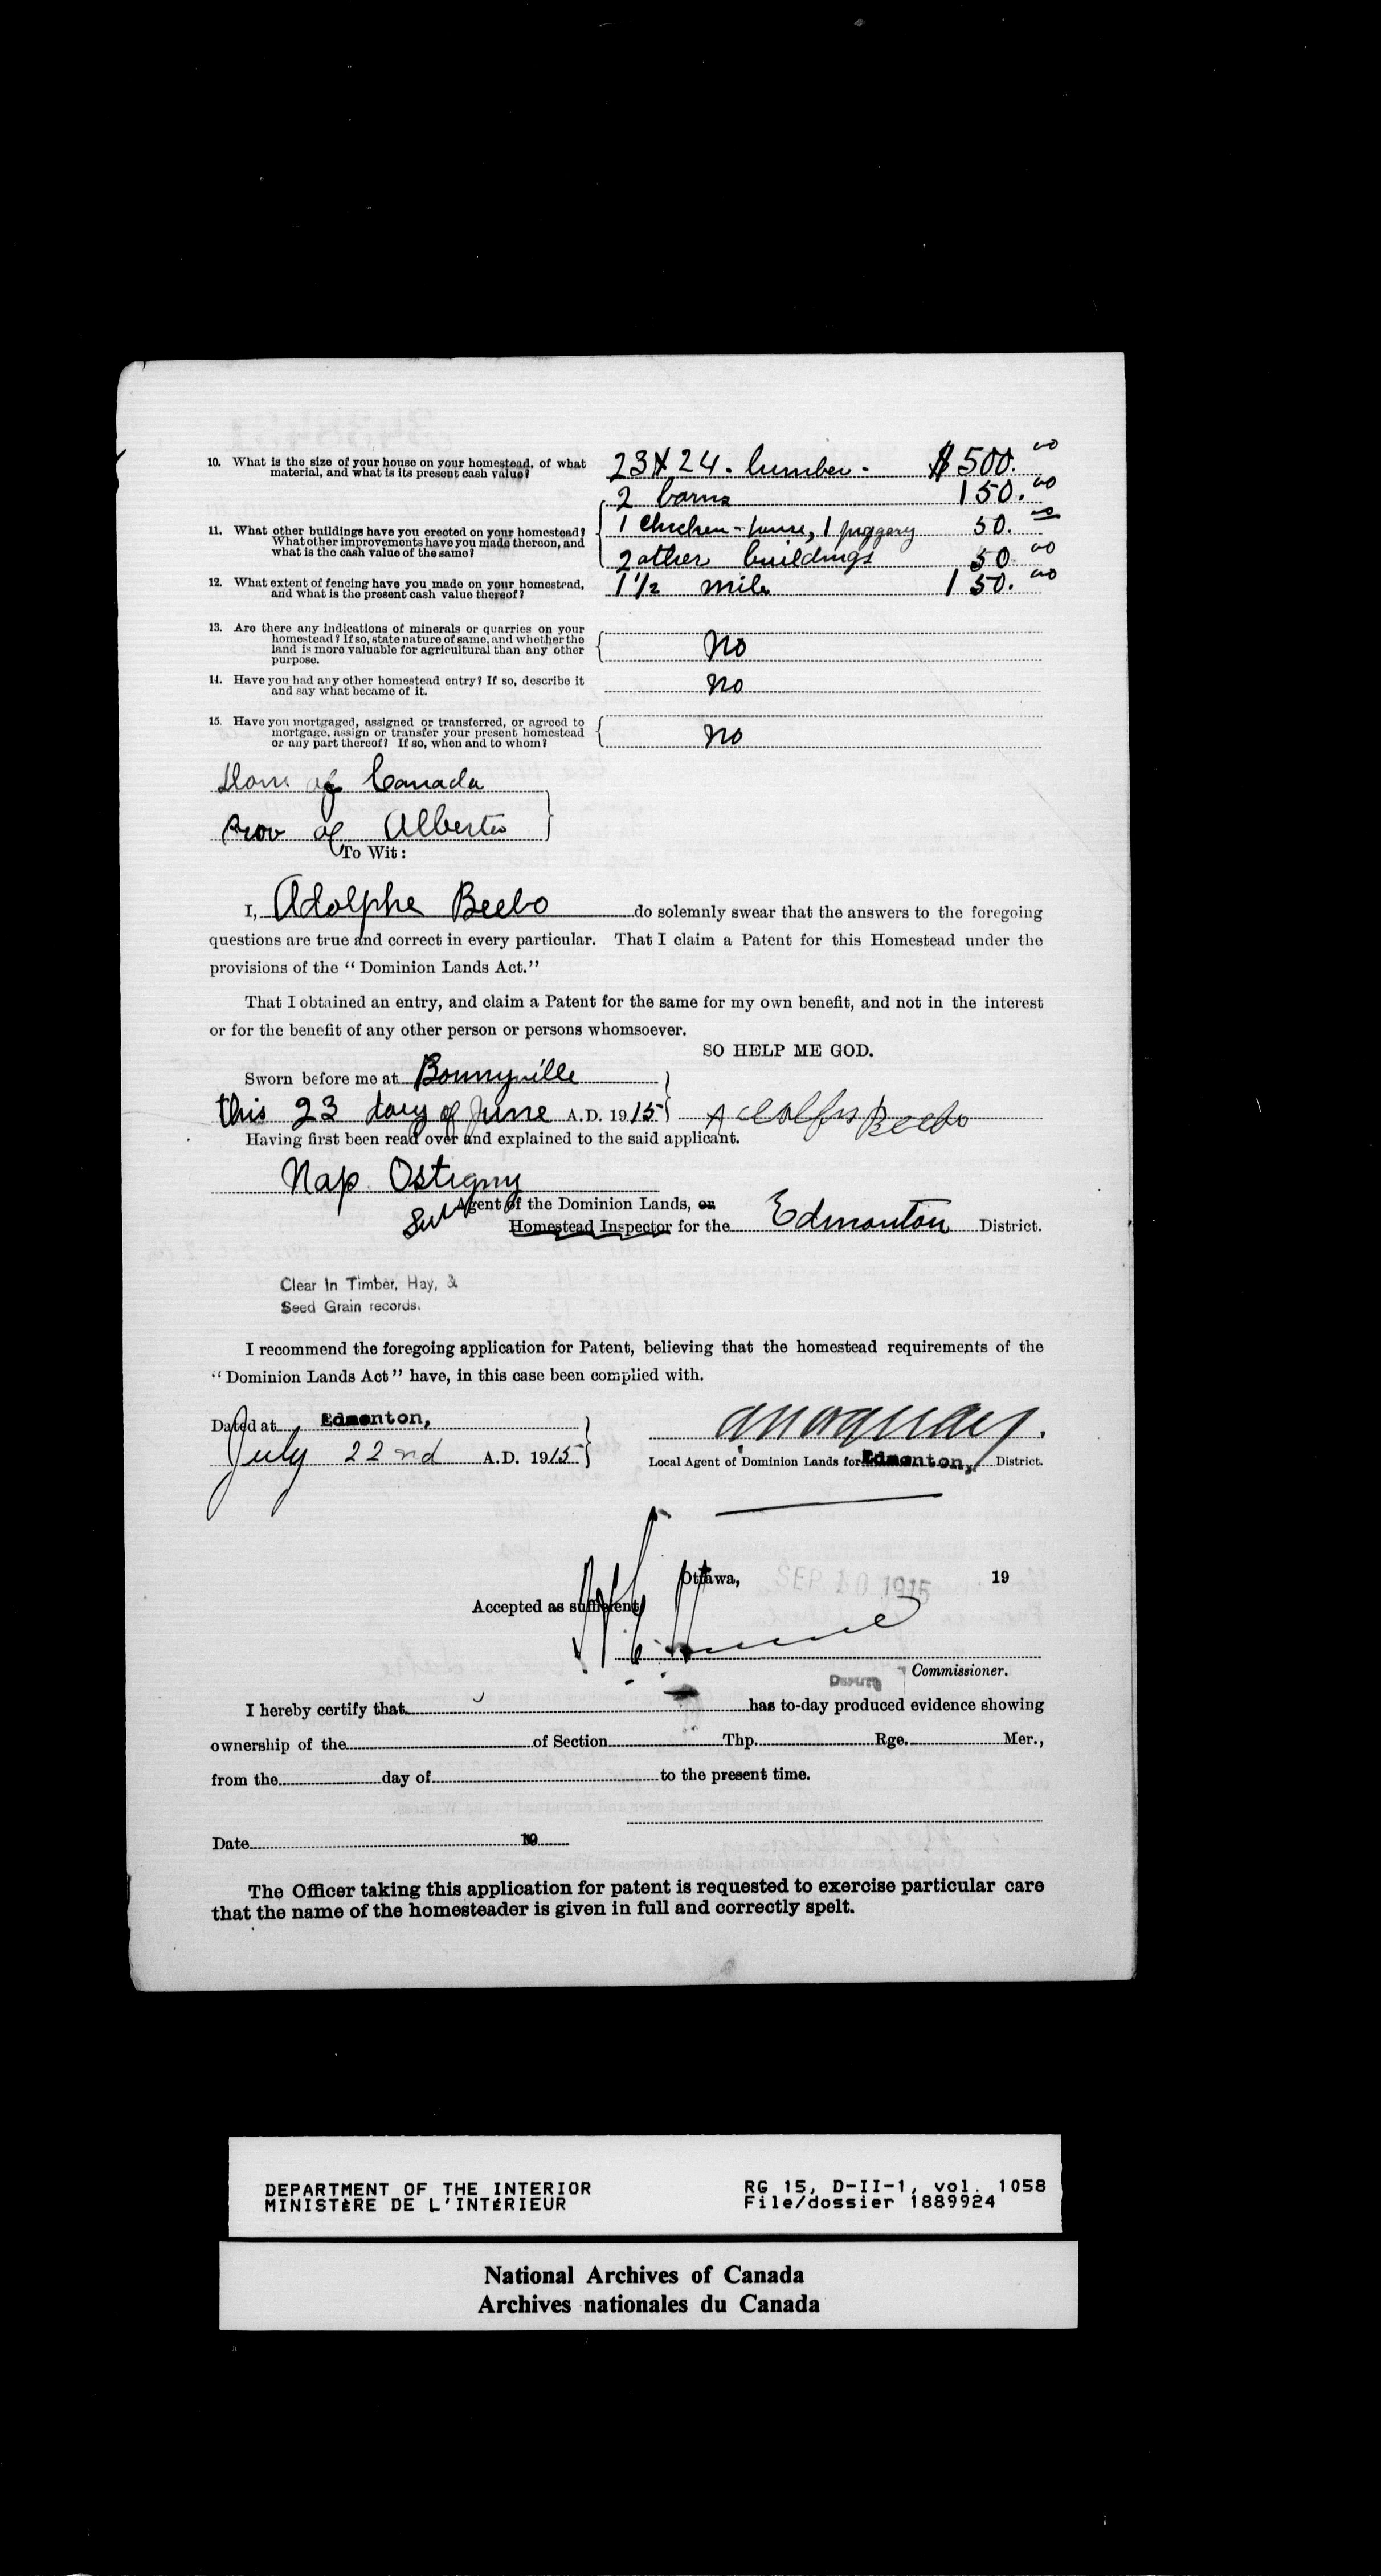 10. What is the size of your house on your homestead, of what material, and what is its present cash value?
23 X 24. lumber. $500.00
2 barns 150.00
11. What other buildings have you erected on your homestead? What other improvements have you made thereon, and what is the cash value of the same?
1 chicken-house, 1 piggery 50.00
2 other buildings 50.00
12. What extent of fencing have you made on your homestead, and what is the present cash value thereof?
1 1/2 mile 150.00
13. Are there any indications of minerals or quarries on your homestead? If so, state nature of same, and whether the land is more valuable for agricultural than any other purpose.
No
14. Have you had any other homestead entry? If so, describe it and say what became of it.
No
15. Have you mortgaged, assigned or transferred, or agreed to mortgage, assign or transfer your present homestead or any part thereof? If so, when and to whom?
No
Dom of Canada
Prov of Alberta
To Wit:
I, Adolphe Beebo do solemnly swear that the answers to the foregoing
questions are true and correct in every particular. That I claim a Patent for this Homestead under the
provisions of the "Dominion Lands Act."
That I obtained an entry, and claim a Patent for the same for my own benefit, and not in the interest
or for the benefit of any other person or persons whomsoever.
SO HELP ME GOD.
Sworn before me at Bonnyville
this 23 day of June A.D. 1915 Beebo
Having first been read over and explained to the said applicant.
Nap Ostigny
Sub Agent of the Dominion Lands, or
Homestead Inspector for the Edmonton District.
Clear In Timber, Hay, &
Seed Grain records.
I recommend the foregoing application for Patent, believing that the homestead requirements of the
"Dominion Lands Act" have, in this case been complied with.
Dated at Edmonton,
July 22nd A.D. 1915
Local Agent of Dominion Lands for Edmonton, District.
Ottawa, SEP 10 1915 19
Accepted as sufficient
Deputy Commissioner.
I hereby certify that has to-day produced evidence showing
ownership of the of Section Thp. Rge. Mer.,
from the day of to the present time.
Date 19
The Officer taking this application for patent is requested to exercise particular care
that the name of the homesteader is given in full and correctly spelt.
DEPARTMENT OF THE INTERIOR RG 15, D-II-1, vol. 1058
MINISTÈRE DE L'INTÉRIEUR File/dossier 1889924
National Archives of Canada
Archives nationales du Canada